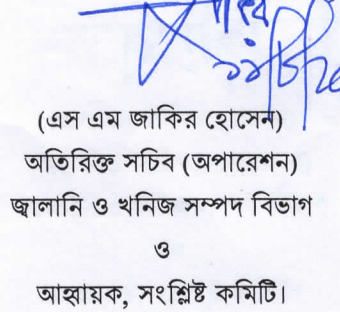 (এস এম জাকির হোসেন)
অতিরিক্ত সচিব (অপারেশন)
জ্বালানি ও খনিজ সম্পদ বিভাগ
ও
আহ্বায়ক, সংশ্লিষ্ট কমিটি।